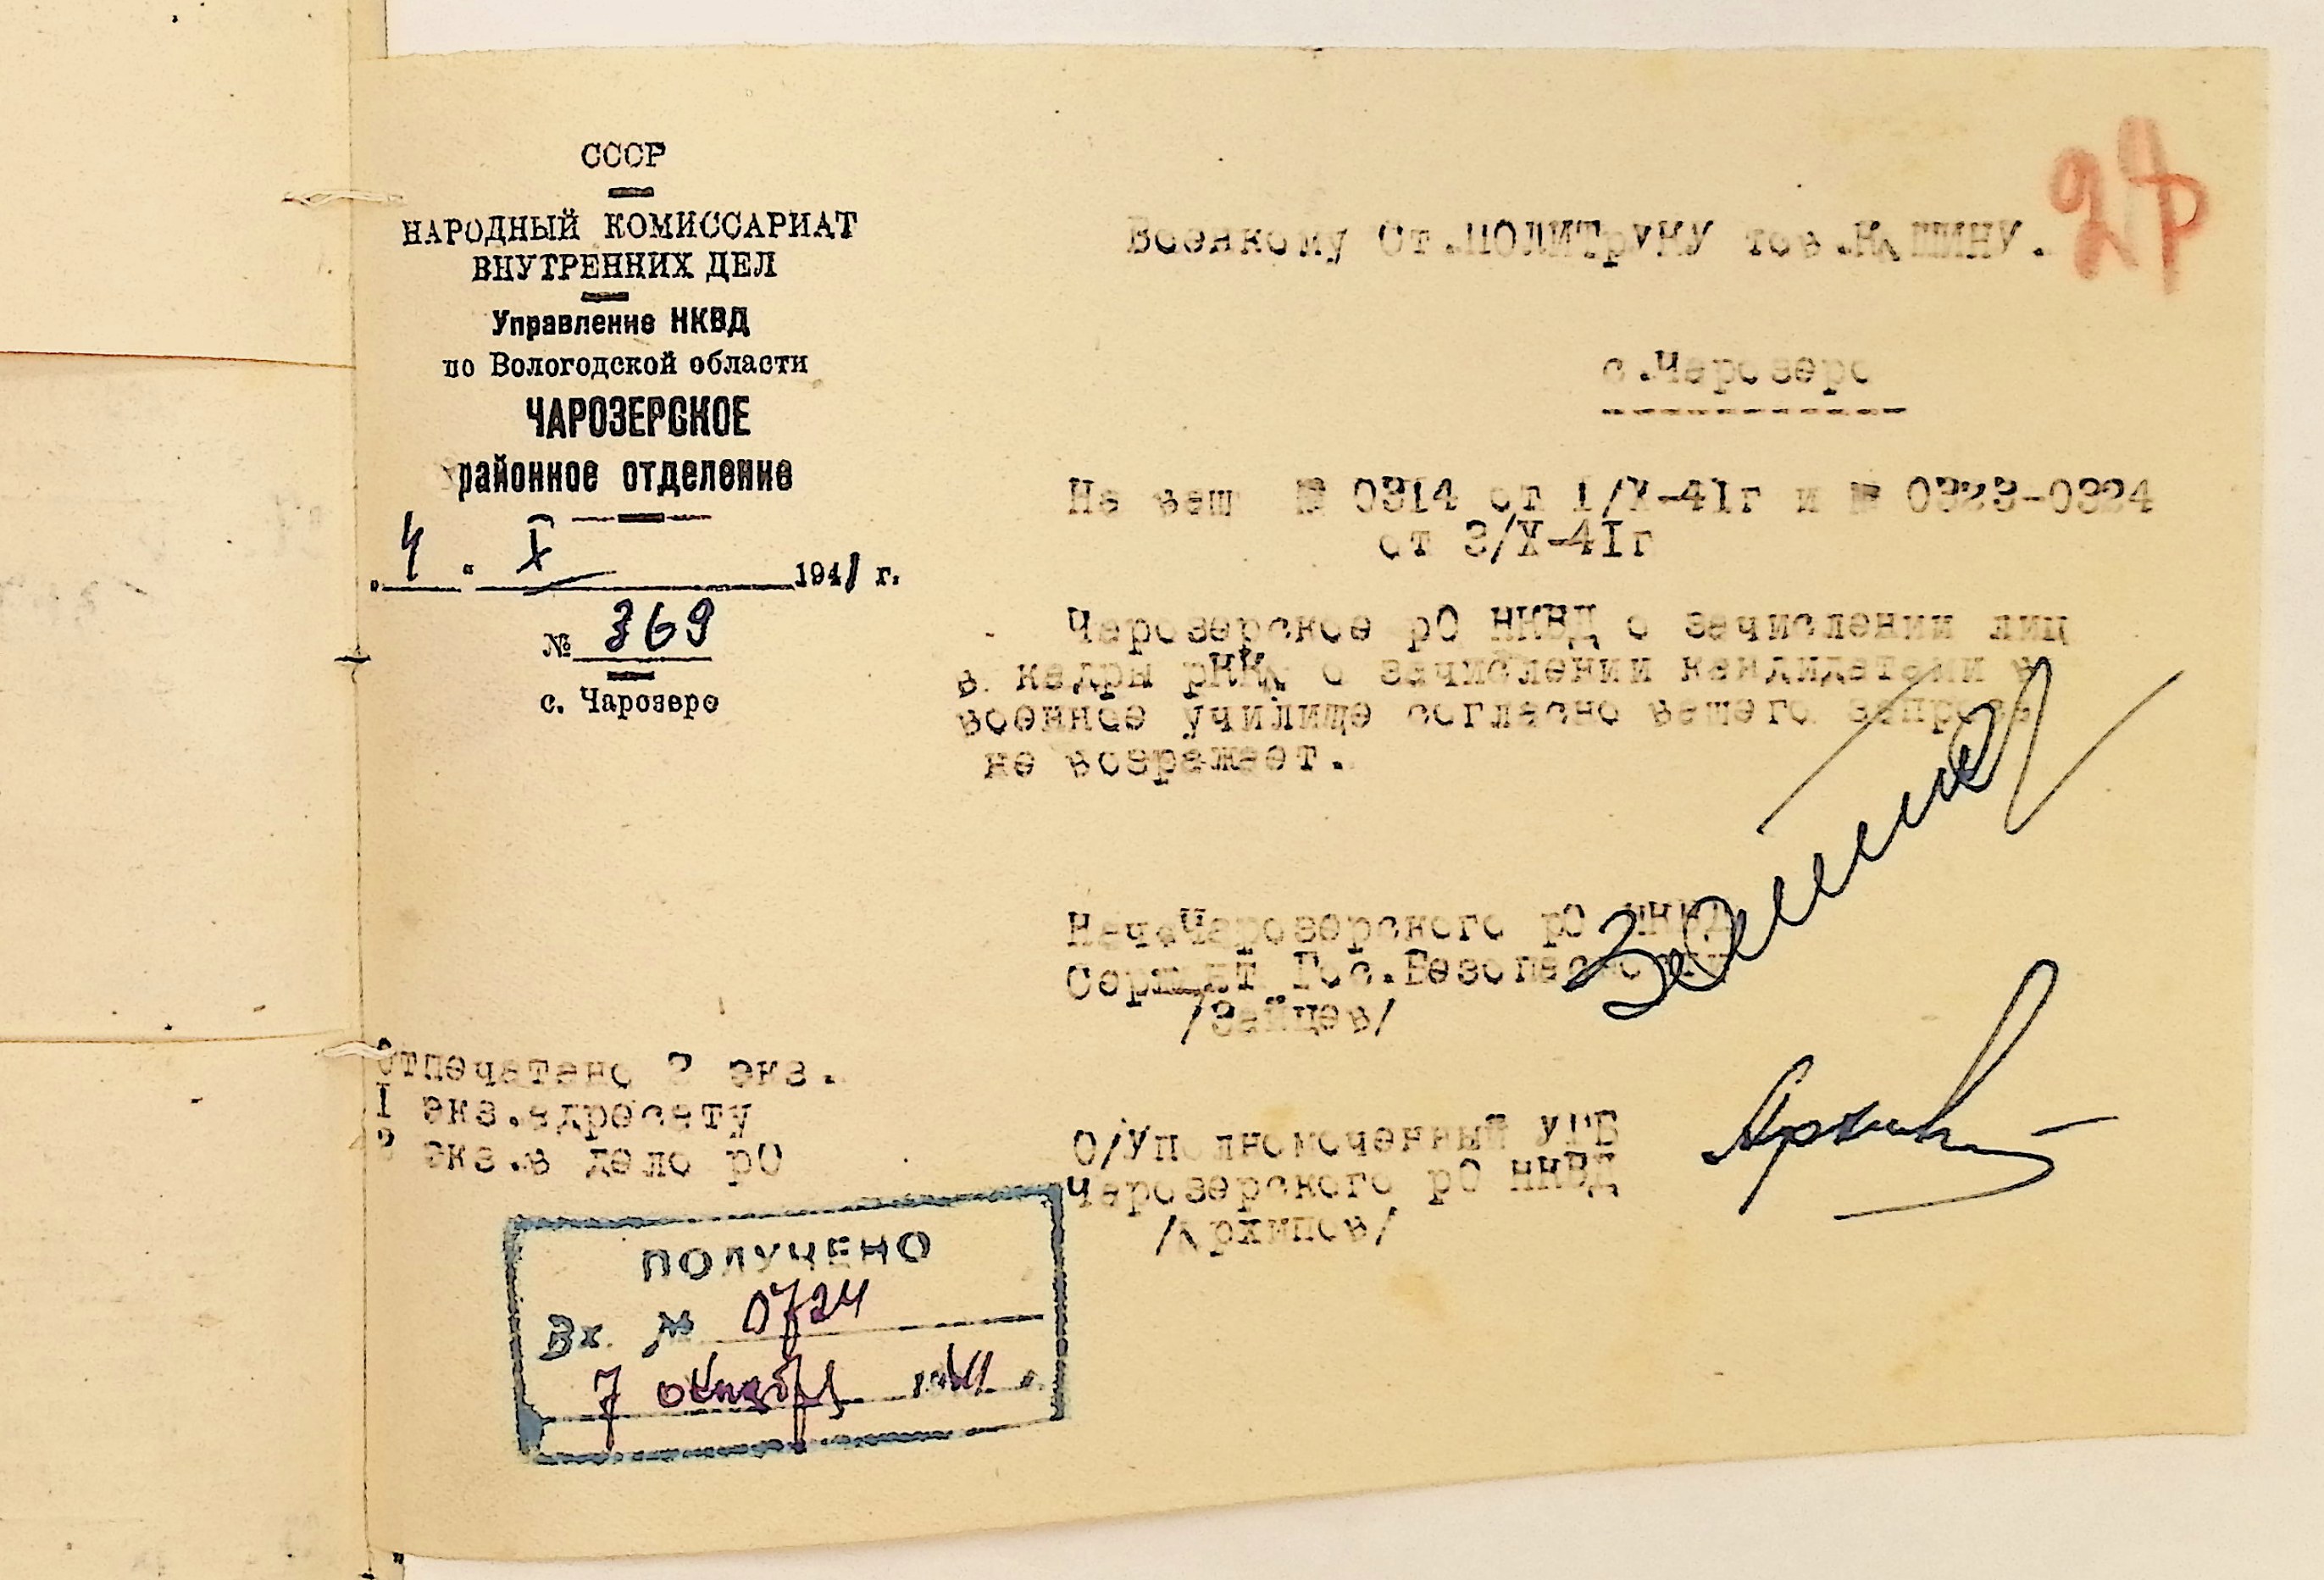 СССР
НАРОДНЫЙ КОМИССАРИАТ
ВНУТРЕННИХ ДЕЛ
Управление НКВД
по Вологодской области
ЧАРОЗЕРСКОЕ
районное отделение
"4" X 1941 г.
№ 369
с. Чарозеро
Военкому Ст.ПОЛИТРУКУ тов.
с.Чарозеро
На ваш № 0314 от I/X-4Iг и № 0323-0324
от 3/X-4Iг
Чарозерское рО НКВД о зачислении лиц
в кадры рККА о зачислении кандидатами в
военное училище согласно вашего запроса
не возражает.
Нач.Чарозерского рО НКВД
Сержант Гос.Безопасности
/Зайцев/
Отпечатано 2 экз.
I экз.адресату
2 экз.в дело рО
О/Уполномоченный УГБ
Чарозерского рО НКВД
/Архипов/
ПОЛУЧЕНО
Вх. № 0724
7 октября 1941 г.